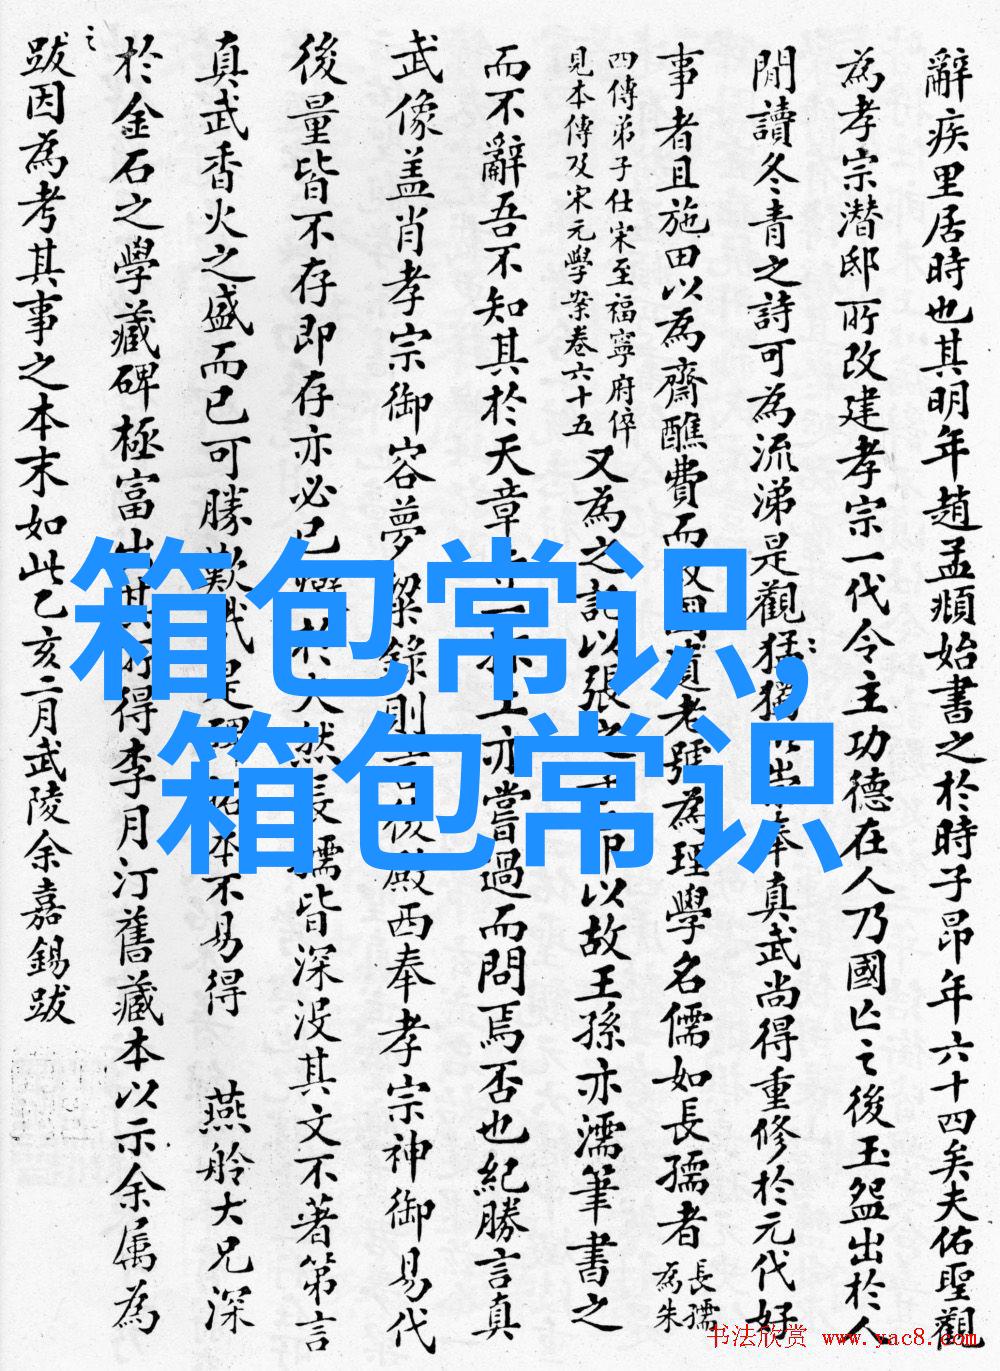 辭疾里居時也其明年趙孟頫始書之於時子昂年六十四矣夫佑聖觀
為孝宗潜邸所改建孝宗一代令主功德在人乃國亡之後玉盌出於人
間讀冬青之詩可為流涕是觀猛獨出奉真武尚得重修於元代好
事者且施田以為齋醮費而道老號為理學名儒如長孺者
長孺為朱
四傳弟子仕宋至福寧府倅
見本傳及宋元學案卷六十五
又為之記以張之以故王孫亦濡筆書之
而不辭吾不知其於天章上亦嘗過而問焉否也紀勝言真
武像盖肖孝宗御容夢粱錄則言後殿西奉孝宗神御易代
後量皆不存即存亦必已於火然長孺皆深没其文不著第言
真武香火之盛而已可勝歎哉是碑拓本不易得 燕舲大兄深
於金石之學藏碑極富出其所得李月汀舊藏本以示余属為
之
跋因為考其事之本末如此乙亥二月武陵余嘉錫跋
箱包常识,
箱包常识
书法欣赏 www.yac8.com